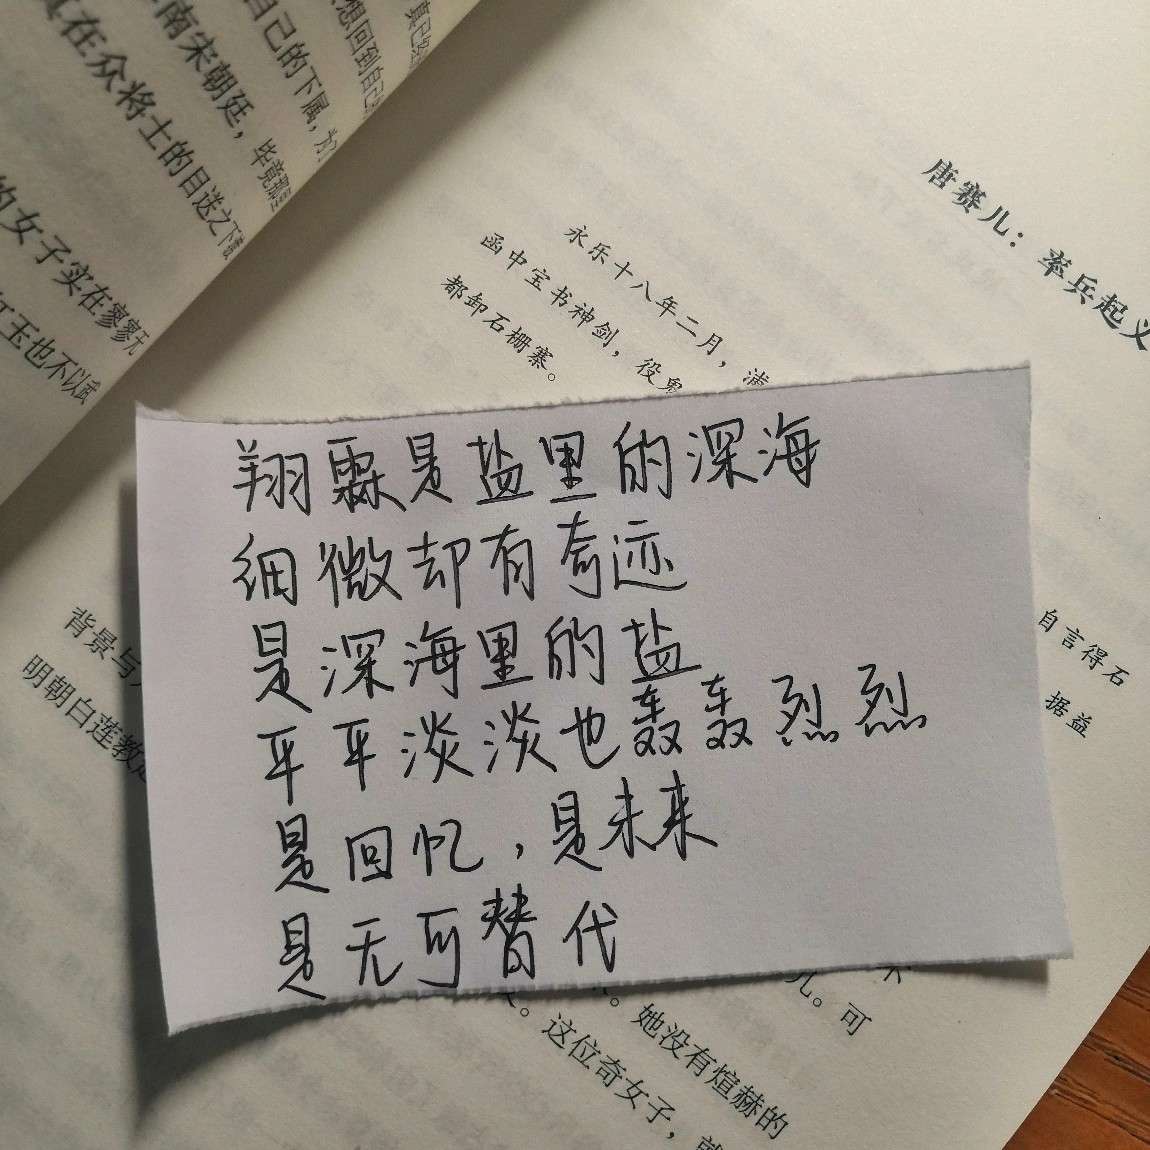 真已经
想回到自己
自己的下属，为
南宋朝廷，毕竟那
真在众将士的目送之下
的女子实在寥寥无
红玉也不以
唐赛儿：率兵起义
永乐十八年二月，浦
函中宝书神剑，役鬼
都卸石栅寨。
翔霖是盐里的深海
细微却有奇迹
是深海里的盐
平平淡淡也轰轰烈烈
是回忆，是未来
是无可替代
自言得石
据益
背景与
明朝白莲教起
儿。可
。她没有煊赫的
。这位奇女子，